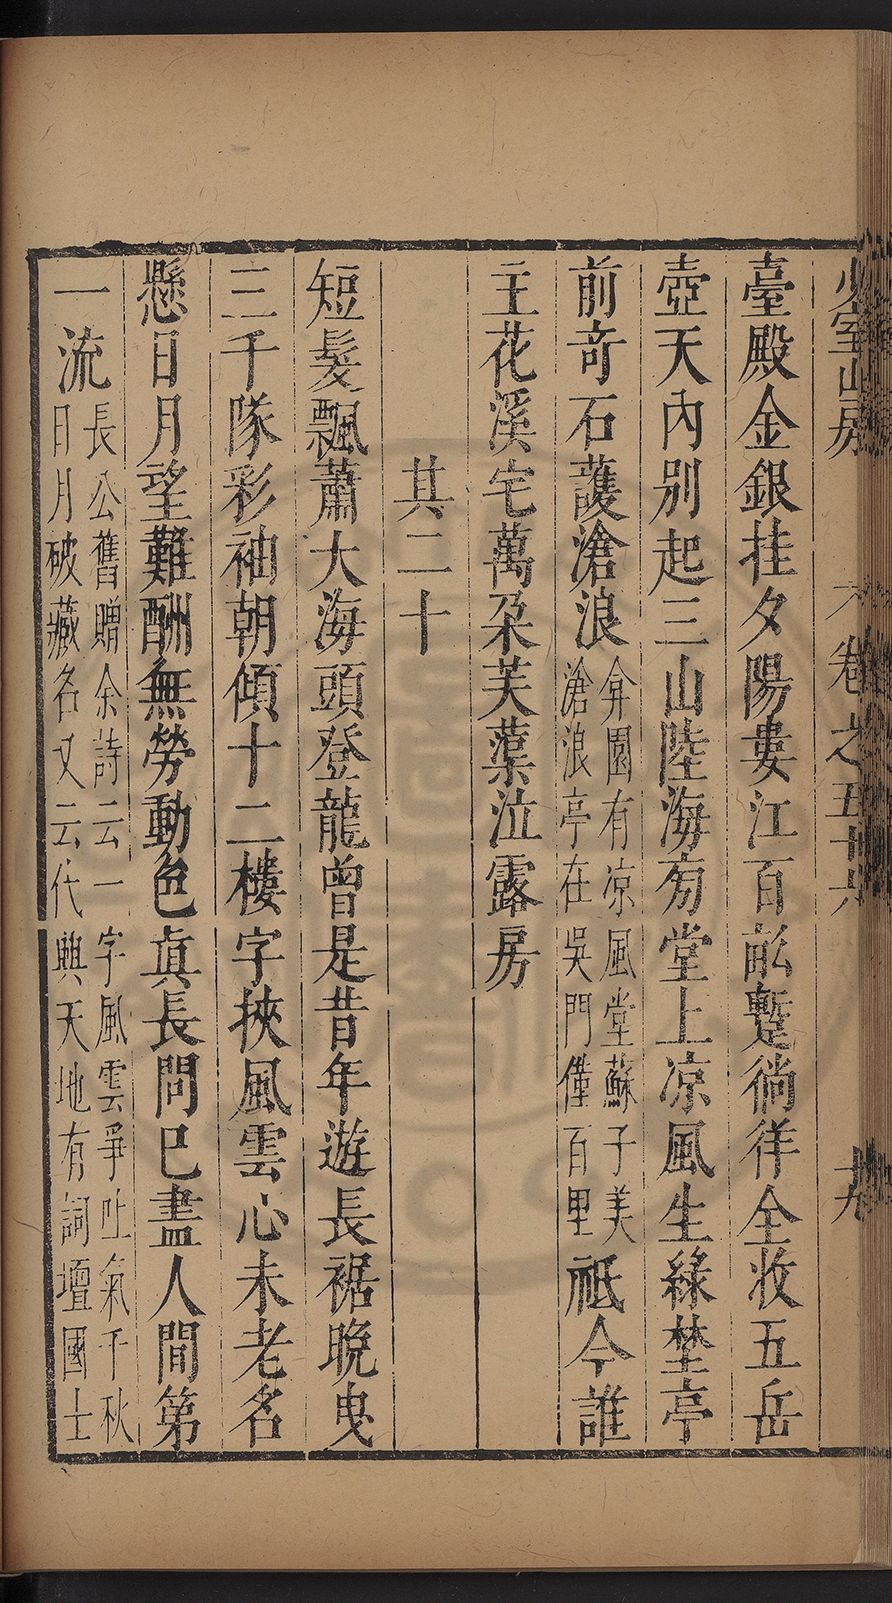 少室山房 卷之五十六 十九
臺殿金銀挂夕陽婁江百畝蹔徜徉全收五岳
壺天內别起三山陸海旁堂上凉風生綠埜亭
前奇石護滄浪弇園有凉風堂蘇子美滄浪亭在吳門僅百里祗今誰
主花溪宅萬朶芙蕖泣露房
其二十
短髮飄蕭大海頭登龍曾是昔年遊長裾晩曳
三千隊彩袖朝傾十二樓字挾風雲心未老名
懸日月望難酬無勞動色眞長問巳盡人間第
一流長公舊贈余詩云一字風雲爭吐氣千秋日月破藏名又云代興天地有詞壇國士